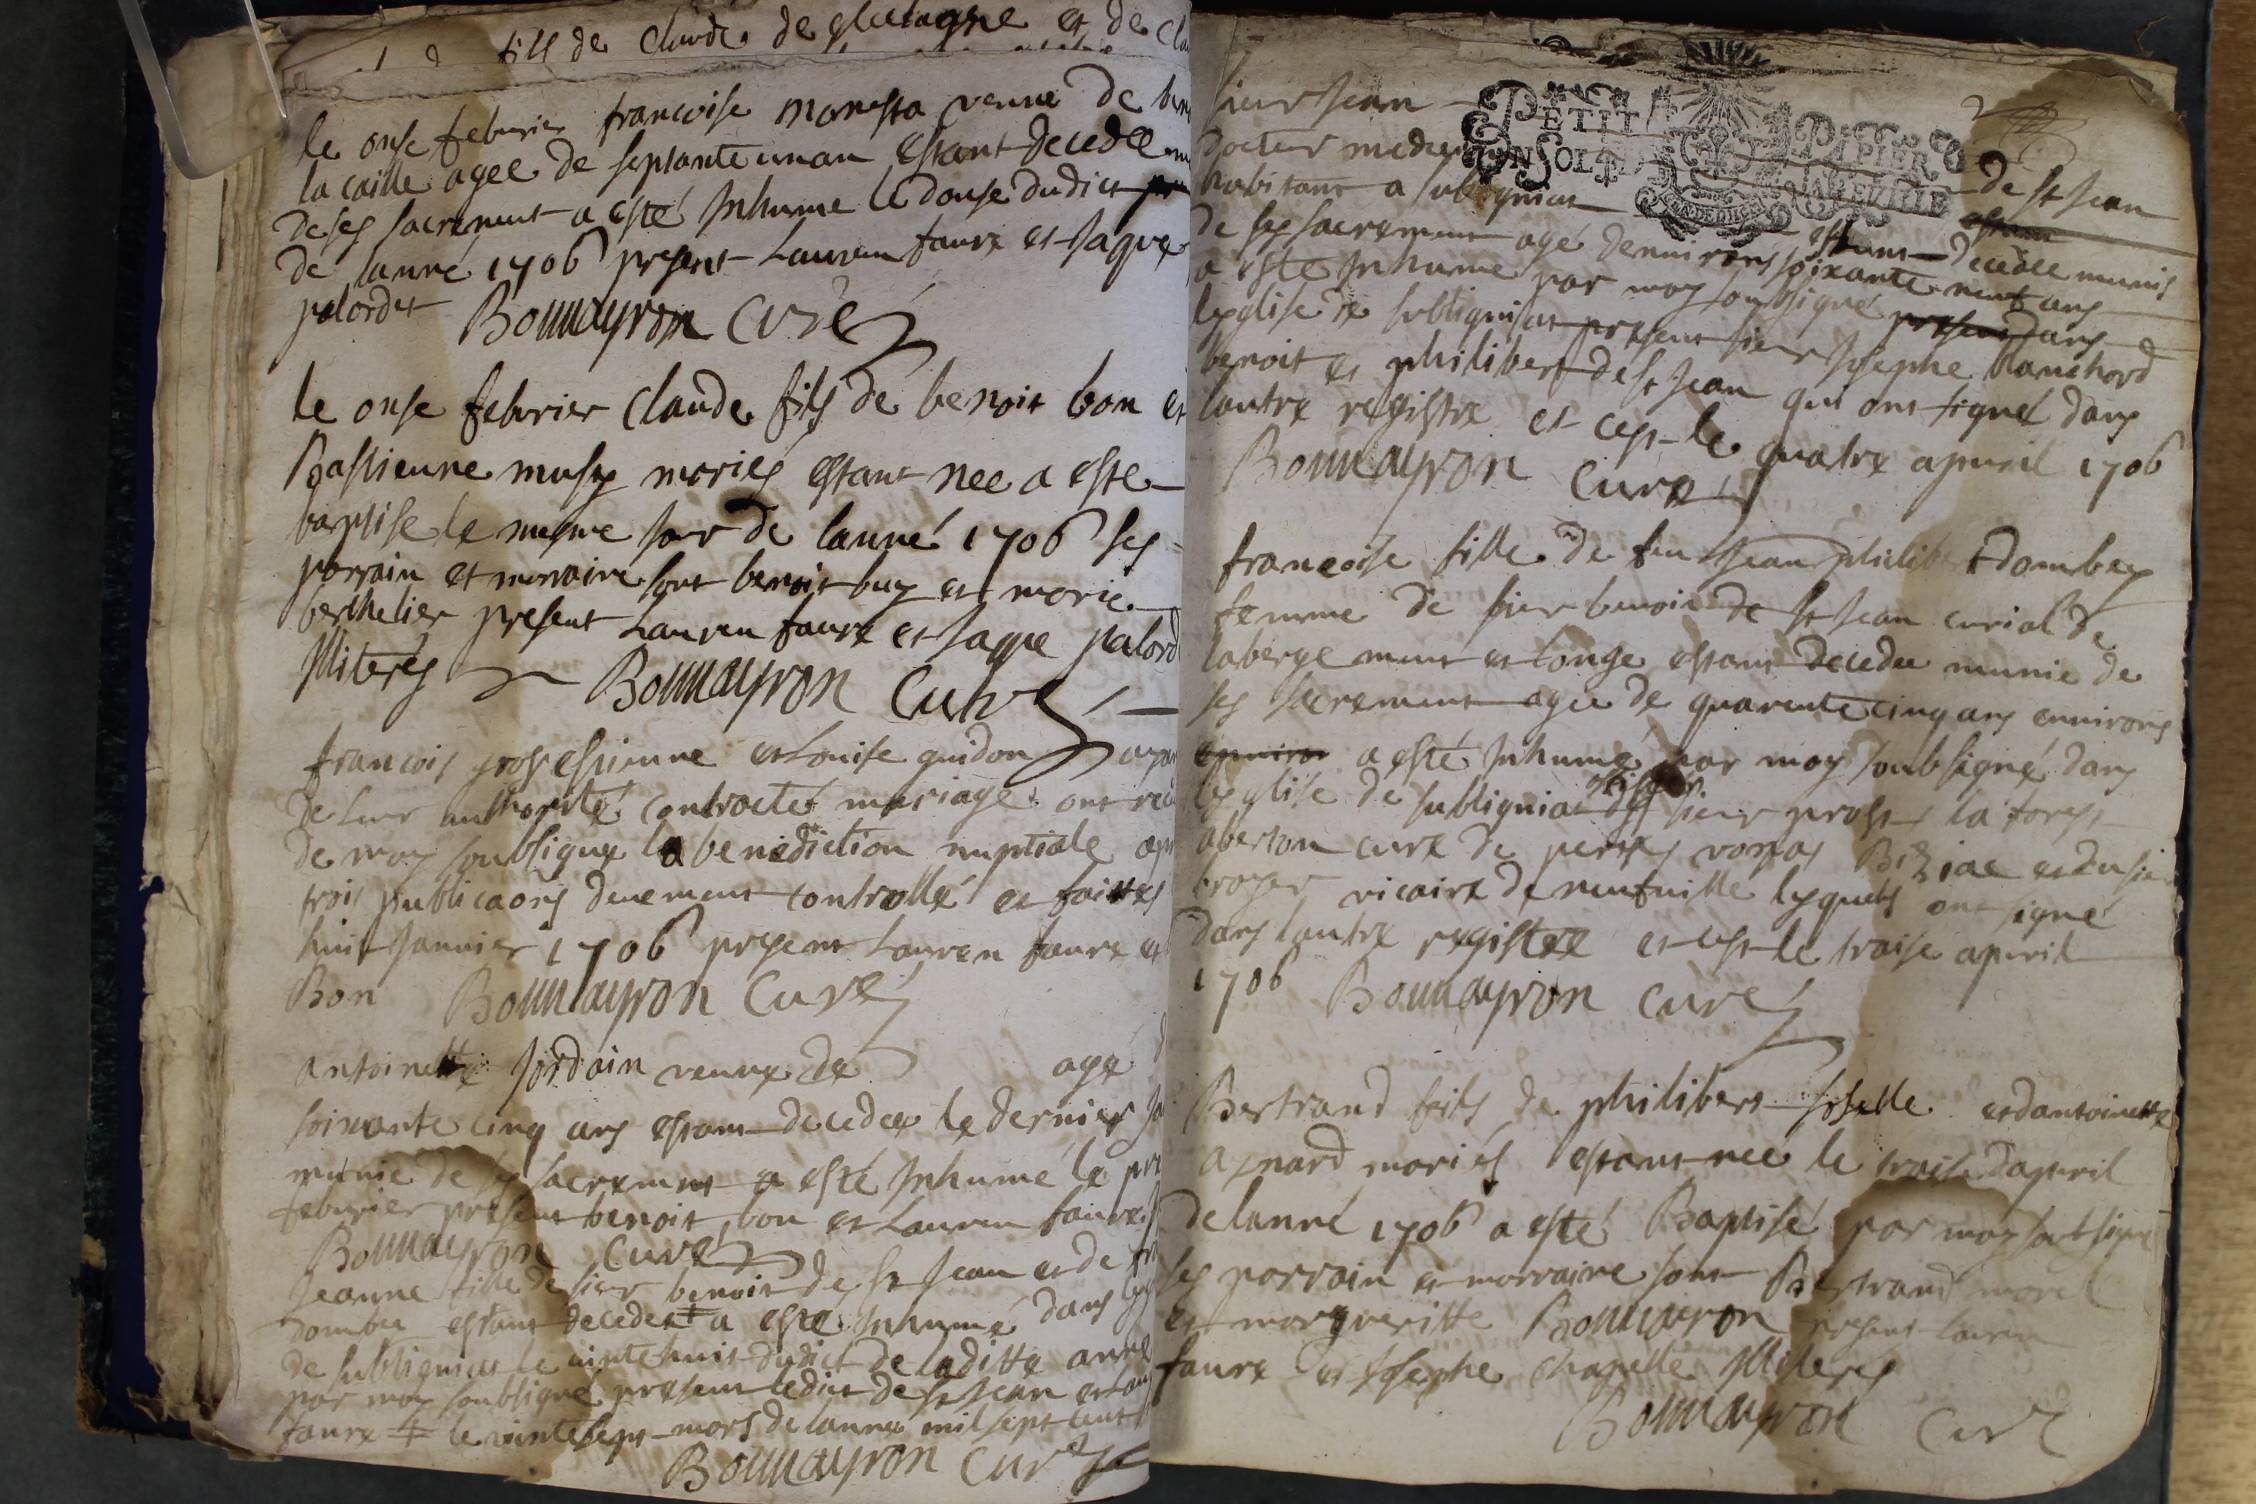 fils de Claude de glatagne et de Cla
le onse feburier francoise monesta veuue de ben
la caille agee de septante un an estant decedee mu
de ses sacrement a esté Inhume le douse dudict
de lanné 1706 present Lauren faure et Jaque
palordet Bonnayron Curé
le onse feburier Claude fils de benoit bon et
Bastienne musy mariés estant nee a este
baptise le mesme jour de lanné 1706 ses
parrain et marraine sont benoit buy et marie
berthelier present Lauren faure et Jaque palord
Illiterés Bonnayron Curé
francois gros estienne et Louise guidon ayan
de leur authorité contracté mariage ont
de moy soubsigne la benediction nuptiale apr
trois publicaons deuement controllé et faittes
huit Januier 1706 present Lauren faure et
Bon Bonnayron Curé
antoinette Jordain veuue de agé d
soixante cinq ans estant decedee le dernier Ja
munie de ses sacrement a esté Inhumé le pre
feburier present benoit bon et Lauren faure
Bonnayron Curé
Jeanne fille de sier benoit de St Jean et de fra
dombei estant decedee # a esté Inhumé dans
de subligniat le uintehuit dudict de laditte année
par moy soubsigné present ledict de St Jean et Lau
faure # le uintesept mars de lanne mil sept cent
Bonnayron Curé
sieur Jean de St Jean
PETIT PAPIER
docteur medecin
UN SOL LA FEUILLE
habitant a subligniat estant decedee munis
de ses sacrement agé denuirons soixante neuf ans
a esté Inhumé par moy soubsigné present dans
leglise de subligniat present sieur Josephe blanchard
benoit et philibert de St Jean qui ont signé dans
lautre registre et cest le quatre apuril 1706
Bonnayron Curé
francoise fille de feu Jean philibert dombey
femme de sier benoit de St Jean curial de
labergement et longe estant decedee munie de
ses sacrement agee de quarente cinq ans enuirons
enuiron a esté Inhumé par moy soubsigné dans
leglise de subligniat sieur la forest
aberton cure de vonas Biziae et du sie
royer vicaire de neufuille lesquels ont signé
dans lautre registre et cest le traise apuril
1706 Bonnayron Curé
Bertrand fils de philibert et dantoinette
aynard mariés estant nee le traise dapuril
de lanné 1706 a esté Baptisé par moy soubsigné
ses parrain et marraine sont Bertrand morel
et margueritte Bonnayron present lauren
faure et Josephe chapelle Illiterés
Bonnayron Curé